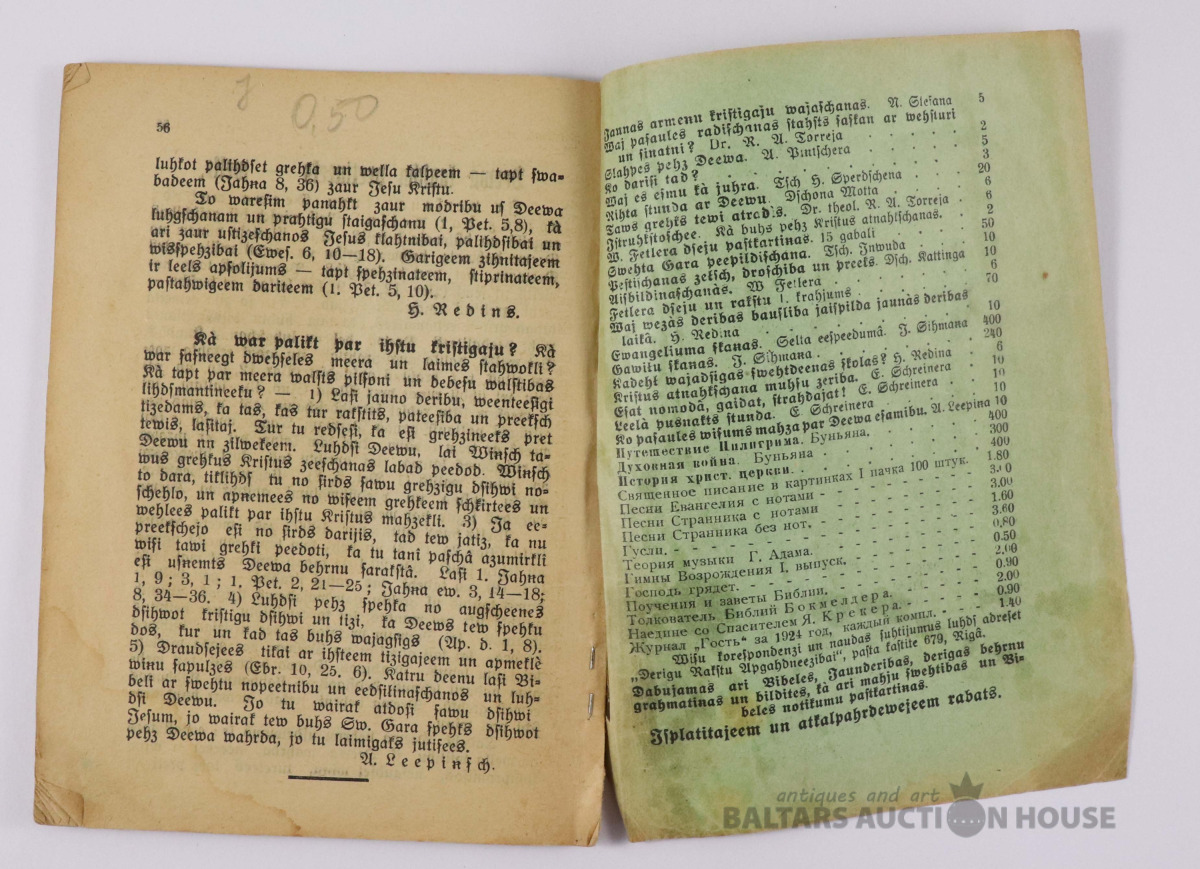 J
0,50
56
luhkot palihdset grehka un wella kalpeem — tapt swa-
badeem (Jahna 8, 36) zaur Jesu Kristu.
To waresim panahkt zaur modribu us Deewa
luhgschanam un prahtigu staigaschanu (1, Pet. 5,8), kà
ari zaur ustizeschanos Jesus klahtnibai, palihdsibai un
wisspehzibai (Ewes. 6, 10—18). Garigeem zihnitajeem
ir leels apsolijums — tapt spehzinateem, stiprinateem,
pastahwigeem dariteem (1. Pet. 5, 10).
H. Redins.
Kà war palikt par ihstu kristigaju? Kà
war sasneegt dwehseles meera un laimes stahwokli?
Kà tapt par meera walsts pilsoni un debesu walstibas
lihdsmantineeku? — 1) Lasi jauno deribu, weenteesigi
tizedams, ka tas, kas tur rakstits, pateesiba un preeksch
tewis, lasitaj. Tur tu redsesi, ka esi grehzineeks pret
Deewu nn zilwekeem. Luhdsi Deewu, lai Winsch ta-
wus grehkus Kristus zeeschanas labad peedod. Winsch
to dara, tiklihds tu no sirds sawu grehzigu dsihwi no-
schehlo, un apnemees no wiseem grehkeem schkirtees un
wehlees palikt par ihstu Kristus mahzekli. 3) Ja ee-
preekschejo esi no sirds darijis, tad tew jatiz, ka nu
wisi tawi grehki peedoti, ka tu tani paschâ azumirkli
esi usnemts Deewa behrnu sarakstâ. Lasi 1. Jahna
1, 9; 3, 1; 1. Pet. 2, 21—25; Jahna ew. 3, 14—18;
8, 34—36. 4) Luhdsi pehz spehka no augscheenes
dsihwot kristigu dsihwi un tizi, ka Deews tew spehku
dos, kur un kad tas buhs wajagsigs (Ap. d. 1, 8).
5) Draudsejees tikai ar ihsteem tizigajeem un apmeklè
winu sapulzes (Ebr. 10, 25. 6). Katru deenu lasi Bi-
beli ar swehtu nopeetnibu un eedsilinaschanos un luh-
dsi Deewu. Jo tu wairak atdosi sawu dsihwi
Jesum, jo wairak tew buhs Sw. Gara spehks dsihwot
pehz Deewa wahrda, jo tu laimigaks jutisees.
A. Leepinsch.
Jaunas armenu kristigaju wajaschanas. N. Slesana 5
Waj pasaules radischanas stahsts saskan ar wehsturi
un sinatni? Dr. R. A. Torreja 2
Slahpes pehz Deewa. A. Pintschera 5
Ko darisi tad? 3
Waj es esmu kà juhra. Tsch H. Sperdschena 20
Rihta stunda ar Deewu. Dschona Motta 6
Taws grehks tewi atradis. Dr. theol. R. A. Torreja 6
Istruhkstoschee. Kà buhs pehz Kristus atnahkschanas. 2
W. Fetlera dseju pastkartinas. 15 gabali 50
Swehta Gara peepildischana. Tsch. Inwuda 10
Pestischanas zelsch, droschiba un preeks. Dsch. Kattinga 10
Aisbildinaschanàs. W Fetlera 6
Fetlera dseju un rakstu I. krahjums 70
Waj wezàs deribas bausliba jaispilda jaunàs deribas
laikà. H. Redina 10
Ewangeliuma skanas. Selta eespeedumâ. J. Sihmana 400
Gawilu skanas. J. Sihmana 240
Kadeht wajadsigas swehtdeenas skolas? H. Redina 6
Kristus atnahkschana muhsu zeriba. E. Schreinera 10
Esat nomodâ, gaidat, strahdajat! E. Schreinera 10
Leelà pusnakts stunda. E. Schreinera 10
Ko pasaules wisums mahza par Deewa esamibu. A. Leepina 10
Путешествие Пилигрима. Буньяна. 400
Духовная война. Буньяна 300
История христ. церкви. 400
Священное писание в картинках I пачка 100 штук. 1.80
Песни Евангелия с нотами 3.00
Песни Странника с нотами 3.00
Песни Странника без нот. 1.60
Гусли. 3.60
Теория музыки Г. Адама. 0.80
Гимны Возрождения I, выпуск. 0.50
Господь грядет. 2.00
Поучения и заветы Библии. 0.90
Толкователь Библий Бокмеллера. 2.00
Наедине со Спасителем Я. Крекера. 0.90
Журнал „Гость“ за 1924 год, каждый компл. 1.40
Wisu korespondenzi un naudas suhtijumus luhds adreset
„Derigu Rakstu Apgahdneezibai“, pasta kastite 679, Rigâ.
Dabujamas ari Bibeles, Jaunderibas, derigas behrnu
grahmatinas un bildites, kà ari mahju swehtibas un Bi-
beles notikumu pastkartinas.
Isplatitajeem un atkalpahrdewejeem rabats.
antiques and art
BALTARS AUCTION HOUSE